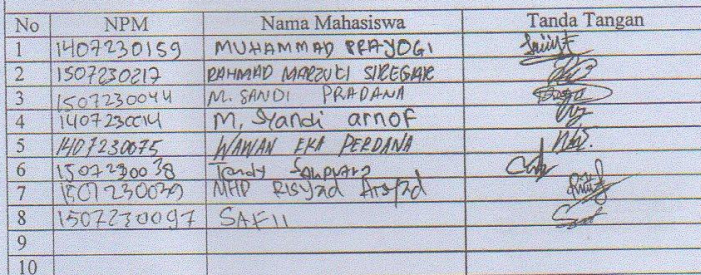 No NPM Nama Mahasiswa Tanda Tangan
1 1407230159 MUHAMMAD PRAYOGI
2 1507230217 RAHMAD MARZUKI SIREGAR
3 1507230044 M. SANDI PRADANA
4 1407230014 M. Syandi arnof
5 1407230075 WAWAN EKA PERDANA
6 1507230038 Tandy
7 1507230039 MHD RISYad Arsyad
8 1507230097 SAFII
9
10